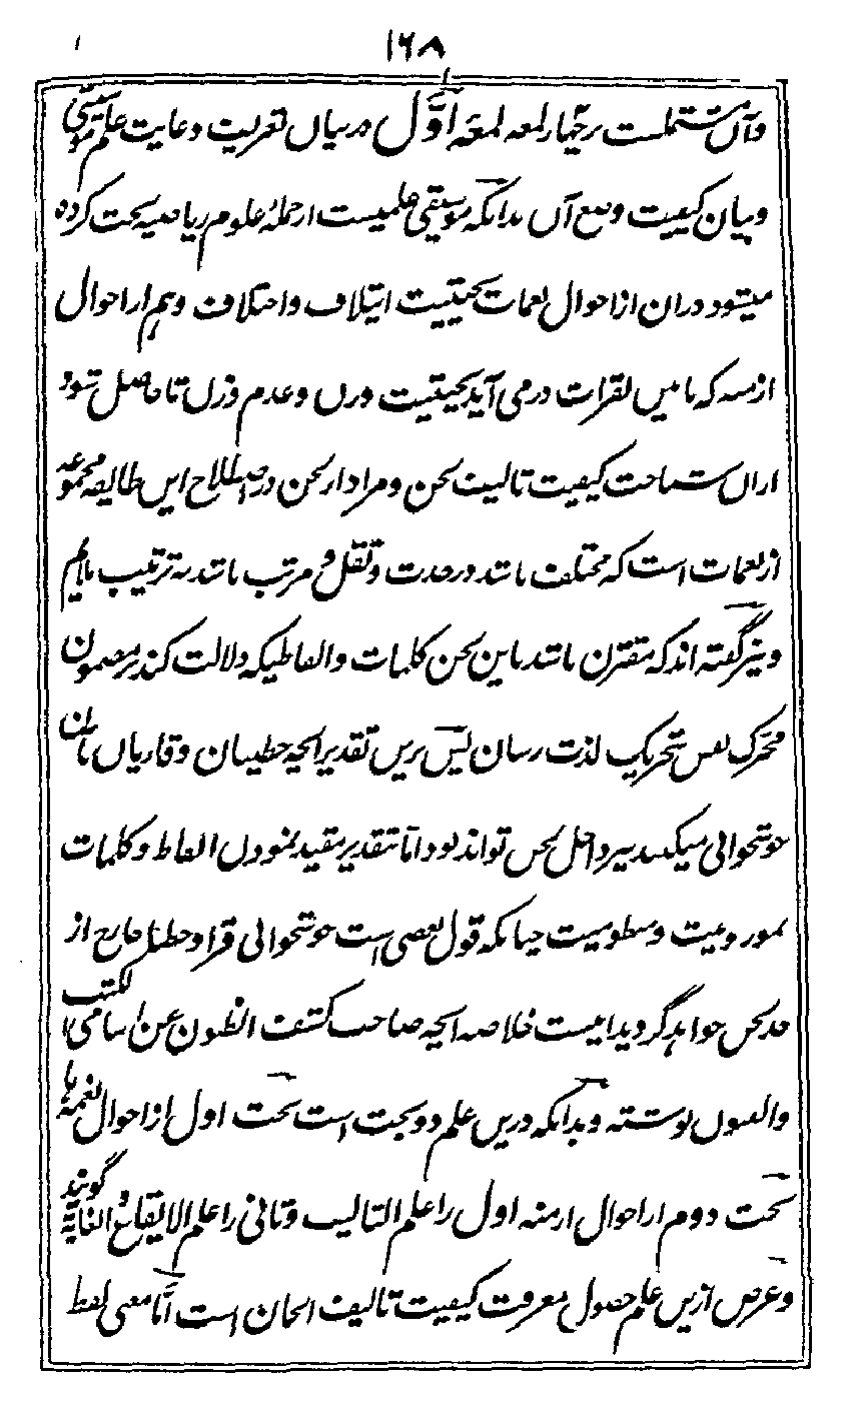 ۱۶۸
وآن مشتملست برچهار لمعه لمعه اوّل در بیان تعریف و غایت علم موسیقی
و بیان کیفیت وضع آن بدانکه موسیقی علمیست از جملهٔ علوم ریاضیه بحث کرده
میشود دران از احوال نغمات بحیثیت ایتلاف و اختلاف و هم از احوال
ازمنه که مابین نقرات درمی آید بحیثیت وزن و عدم وزن تا حاصل شود
ازان شناخت کیفیت تالیف لحن و مراد از لحن در اصطلاح این طایفه مجموعه
از نغمات است که مختلف باشد در حدت و ثقل و مرتب باشد به ترتیب ملایم
و نیز گفته اند که مقترن باشد باین لحن کلمات و الفاظیکه دلالت کند بر مضمون
محرک نفس بتحریک لذت رسان پس برین تقدیر آنچه خطیبان و قاریان بآن
خوشخوانی میکنند نیز داخل لحن تواند بود امّا بتقدیر مقید نمودن الفاظ و کلمات
بموزونیت و منظومیت چنانکه قول بعضی است خوشخوانی قرا و خطبا خارج از
حد لحن خواهد گردید اینست خلاصه آنچه صاحب کشف الظنون عن اسامی الکتب
والفنون نوشته و بدانکه درین علم دو بحث است بحث اول از احوال نغمها
بحث دوم از احوال ازمنه اول را علم التالیف و ثانی را علم الایقاع گویند و الغایة
و غرض ازین علم حصول معرفت کیفیت تالیف الحان است امّا معنی لفظ